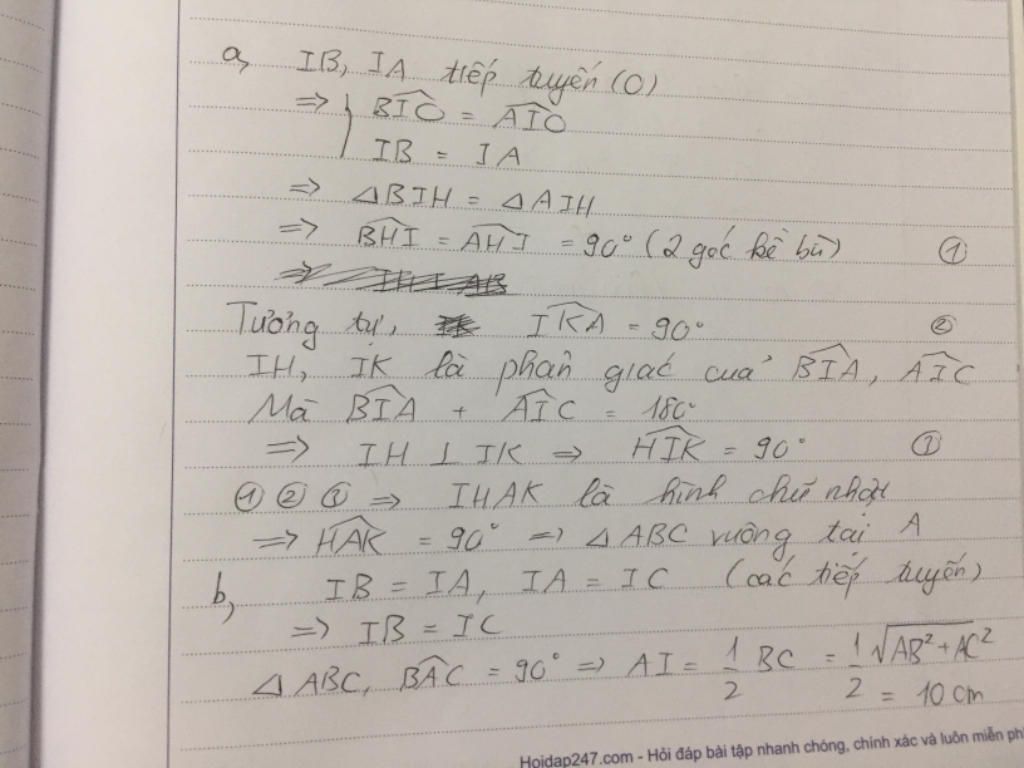 a, IB, IA tiếp tuyến (O)
=> { BIO = AIO
IB = IA
=> △BIH = △AIH
=> BHI = AHI = 90° (2 góc kề bù) ①
Tương tự, IKA = 90° ②
IH, IK là phân giác của BIA, AIC
Mà BIA + AIC = 180°
=> IH ⊥ IK => HIK = 90° ①
① ② ③ => IHAK là hình chữ nhật
=> HAK = 90° => △ABC vuông tại A
b, IB = IA, IA = IC (các tiếp tuyến)
=> IB = IC
△ABC, BAC = 90° => AI = 1/2 BC = 1/2 √AB² + AC²
= 10 cm
Hoidap247.com - Hỏi đáp bài tập nhanh chóng, chính xác và luôn miễn ph